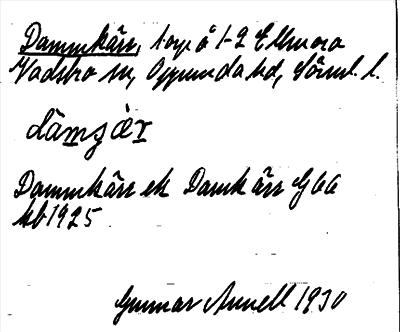 Dammkärr, torp å 1-2 Ellmora
Vadsbro sn, Oppunda hd, Söml. l.
dàmɟàr
Dammkärr ek Damkärr G66
kb 1925
Gunnar Annell 1930